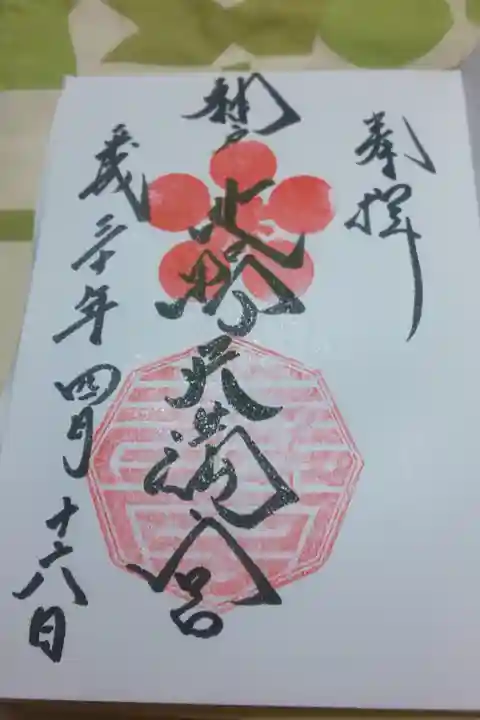 奉拝
神戸
北野天満宮
平成三十年四月十六日